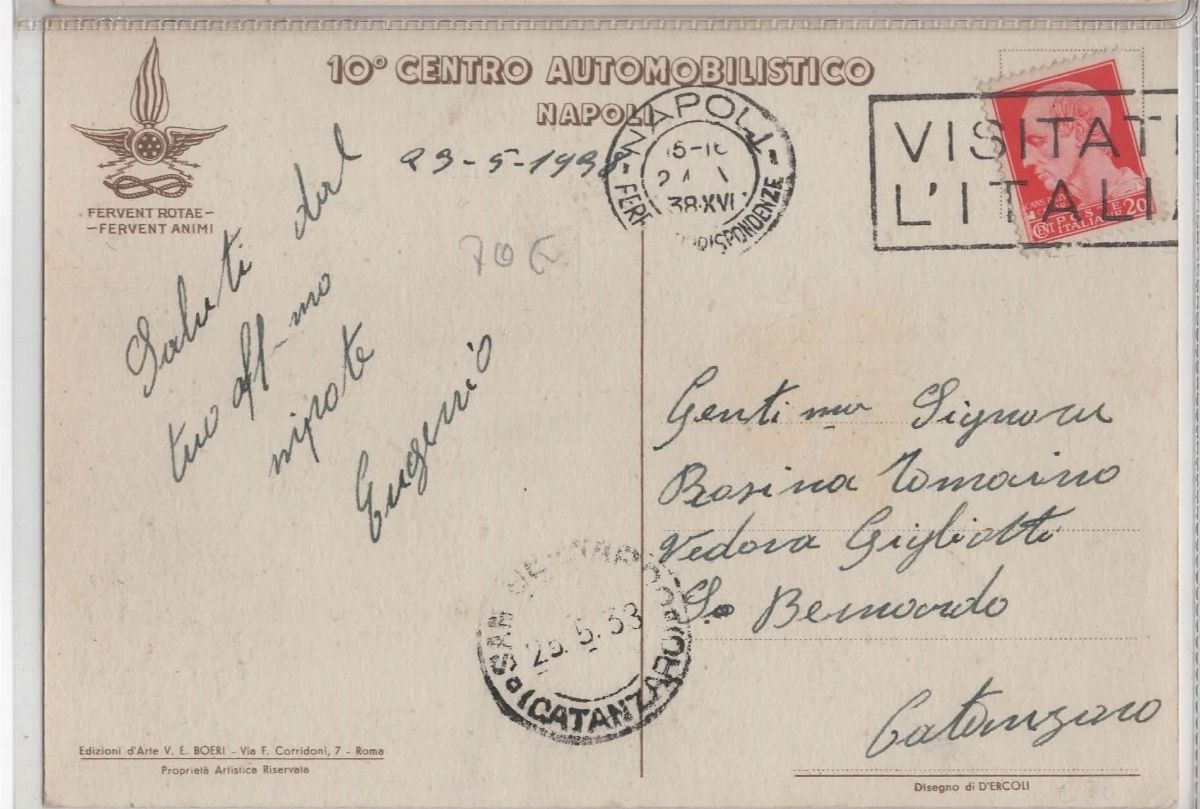 10° CENTRO AUTOMOBILISTICO
NAPOLI
FERVENT ROTAE-
-FERVENT ANIMI
23-5-1938
NAPOLI
15-16
38·XVI
VISITATE
L'ITALIA
POSTE
ITALIANE
CENT 20
70 €
Saluti dal
tuo aff-mo
nipote
Eugenio
Genti ma Signora
Rosina Tomaino
Vedova Gigliotti
S. Bernardo
Catanzaro
SAN BERNARDO
5.38
(CATANZARO)
Edizioni d'Arte V. E. BOERI - Via F. Corridoni, 7 - Roma
Proprietà Artistica Riservata
Disegno di D'ERCOLI